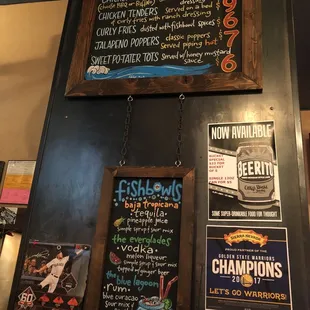 CHICKEN TENDERS
served on a bed
of curly fries with ranch dressing
CURLY FRIES
dusted with fishbowl spices
JALAPENO POPPERS
classic poppers
served piping hot
SWEET PO-TATER TOTS
served w/honey mustard
sauce
9
6
7
6
fishbowls
baja tropicana
tequila
pineapple juice
simple syrup
sour mix
the everglades
vodka
melon liqueur
simple syrup
sour mix
topped w/ginger beer
the blue lagoon
rum
blue curacao
sour mix
NOW AVAILABLE
BEERITO
SOME SUPER-DRINKABLE FOOD FOR THOUGHT
SIERRA NEVADA
PROUD PARTNER OF THE
GOLDEN STATE WARRIORS
CHAMPIONS
2017
LET'S GO WARRIORS!
60